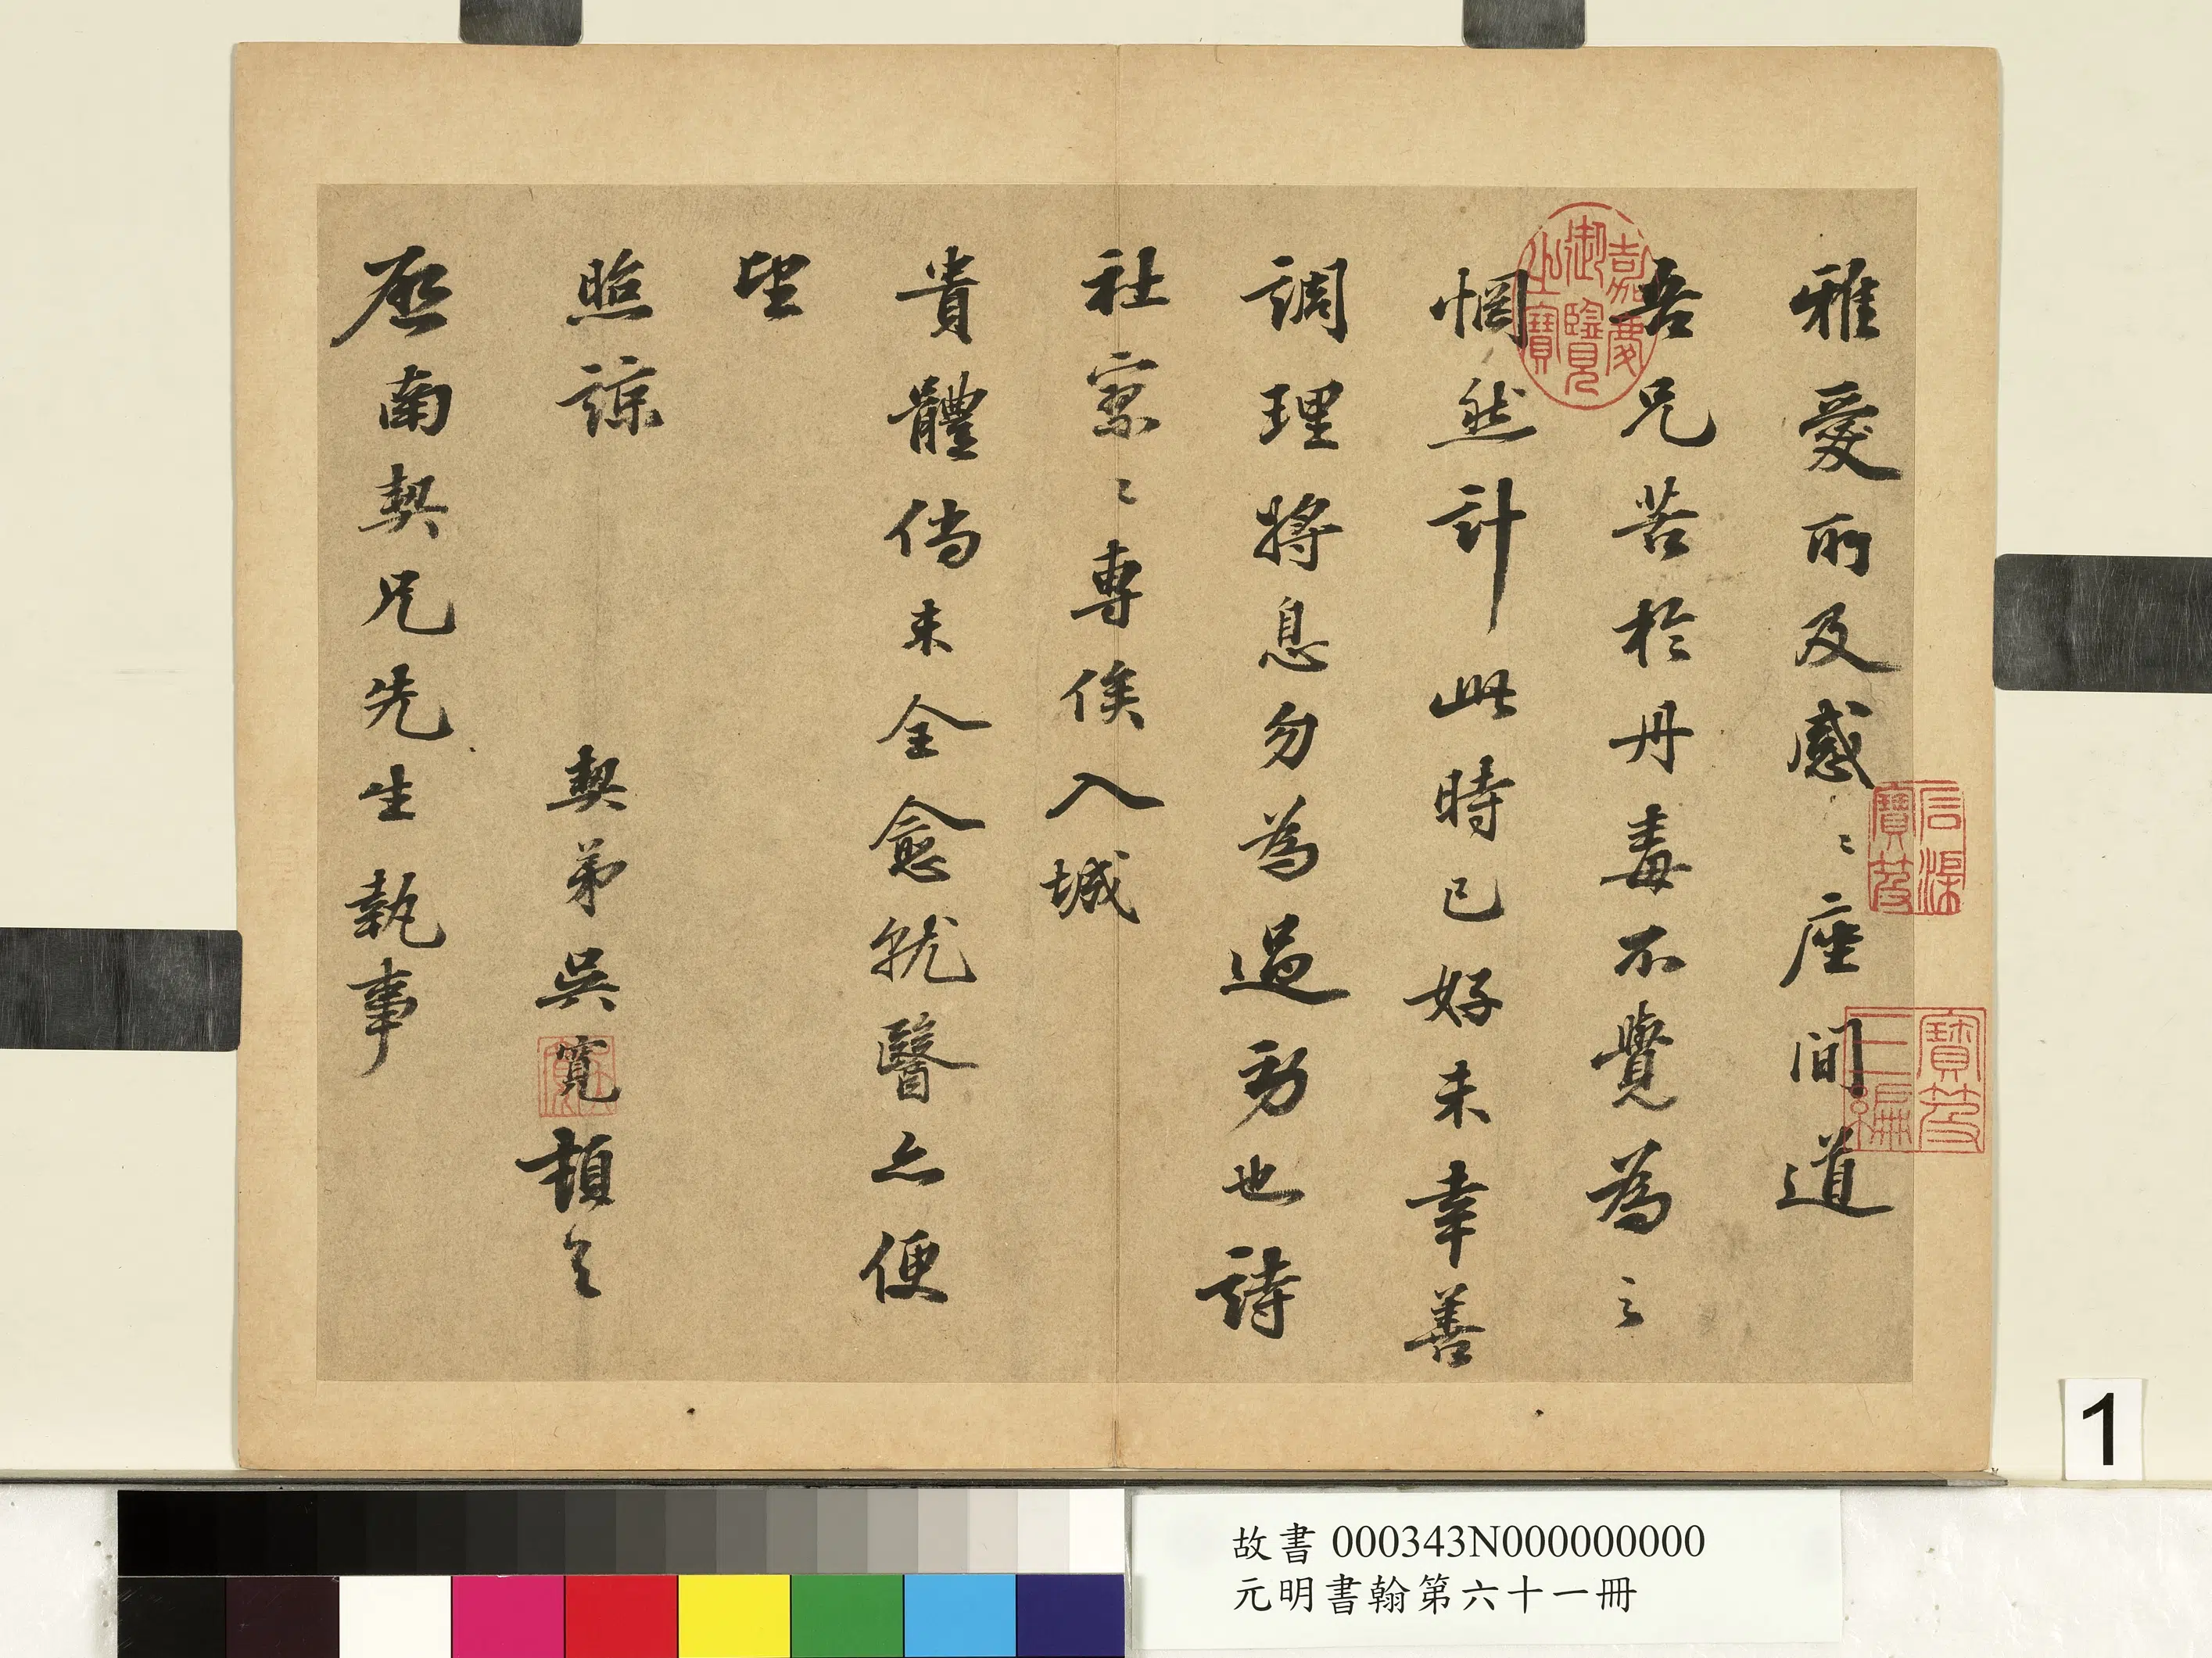 雅愛所及感〻座間道
吾兄苦於丹毒不覺為之
惘然計此時已好未幸善
調理將息勿為過勞也詩
社寥〻專俟入城
貴體倘未全愈就醫亦便
望
照諒
契弟吳寬頓首
啟南契兄先生執事
嘉慶御覽之寶
石渠寶笈
寶笈三編
1
故書 000343N000000000
元明書翰第六十一冊